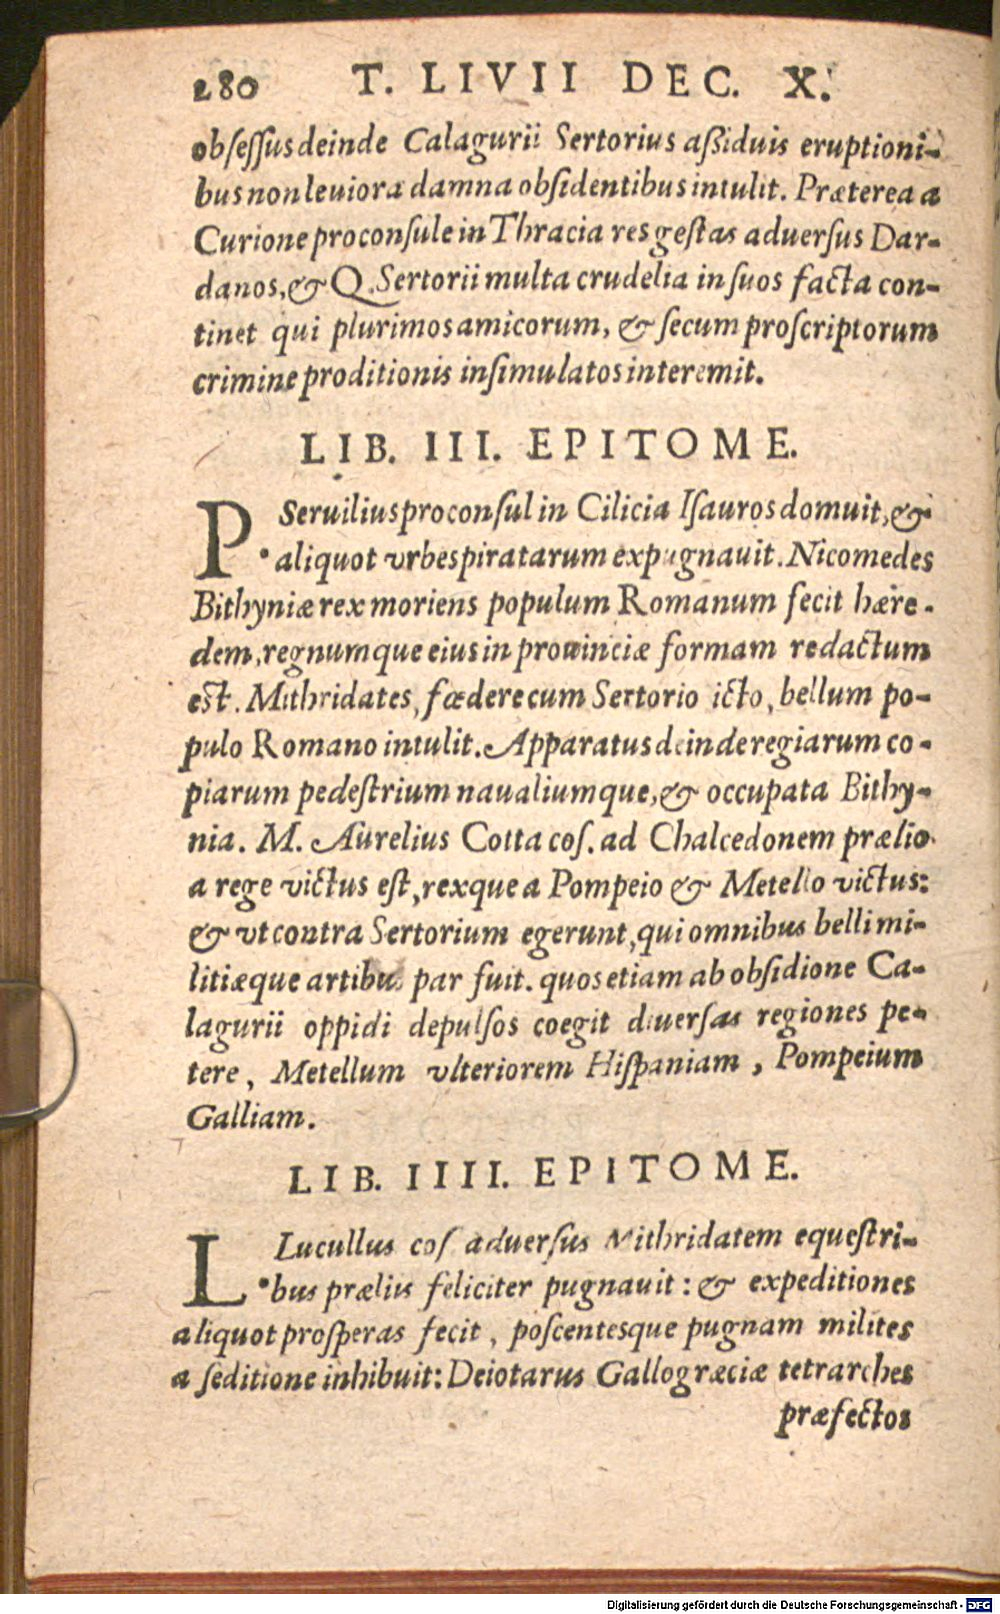 280 T. LIVII DEC. X.
obſeſſus deinde Calagurii Sertorius aßiduis eruptioni-
bus non leuiora damna obſidentibus intulit. Præterea a
Curione proconſule in Thracia res geſtas aduerſus Dar-
danos, & Q. Sertorii multa crudelia in ſuos facta con-
tinet qui plurimos amicorum, & ſecum proſcriptorum
crimine proditionis inſimulatos interemit.
LIB. III. EPITOME.
P. Seruilius proconſul in Cilicia Iſauros domuit, &
aliquot vrbes piratarum expugnauit. Nicomedes
Bithyniæ rex moriens populum Romanum fecit hære-
dem, regnumque eius in prouinciæ formam redactum
est. Mithridates, fœdere cum Sertorio icto, bellum po-
pulo Romano intulit. Apparatus deinde regiarum co-
piarum pedeſtrium naualiumque, & occupata Bithy-
nia. M. Aurelius Cotta coſ. ad Chalcedonem prælio
a rege victus eſt, rexque a Pompeio & Metello victus:
& vt contra Sertorium egerunt, qui omnibus belli mi-
litiæque artibus par fuit. quos etiam ab obſidione Ca-
lagurii oppidi depulſos coegit diuerſas regiones pe-
tere, Metellum vlteriorem Hiſpaniam, Pompeium
Galliam.
LIB. IIII. EPITOME.
L. Lucullus coſ aduerſus Mithridatem equeſtri-
bus præliis feliciter pugnauit: & expeditiones
aliquot proſperas fecit, poſcentesque pugnam milites
a ſeditione inhibuit: Deiotarus Gallogræciæ tetrarches
præfectos
Digitalisierung gefördert durch die Deutsche Forschungsgemeinschaft - DFG